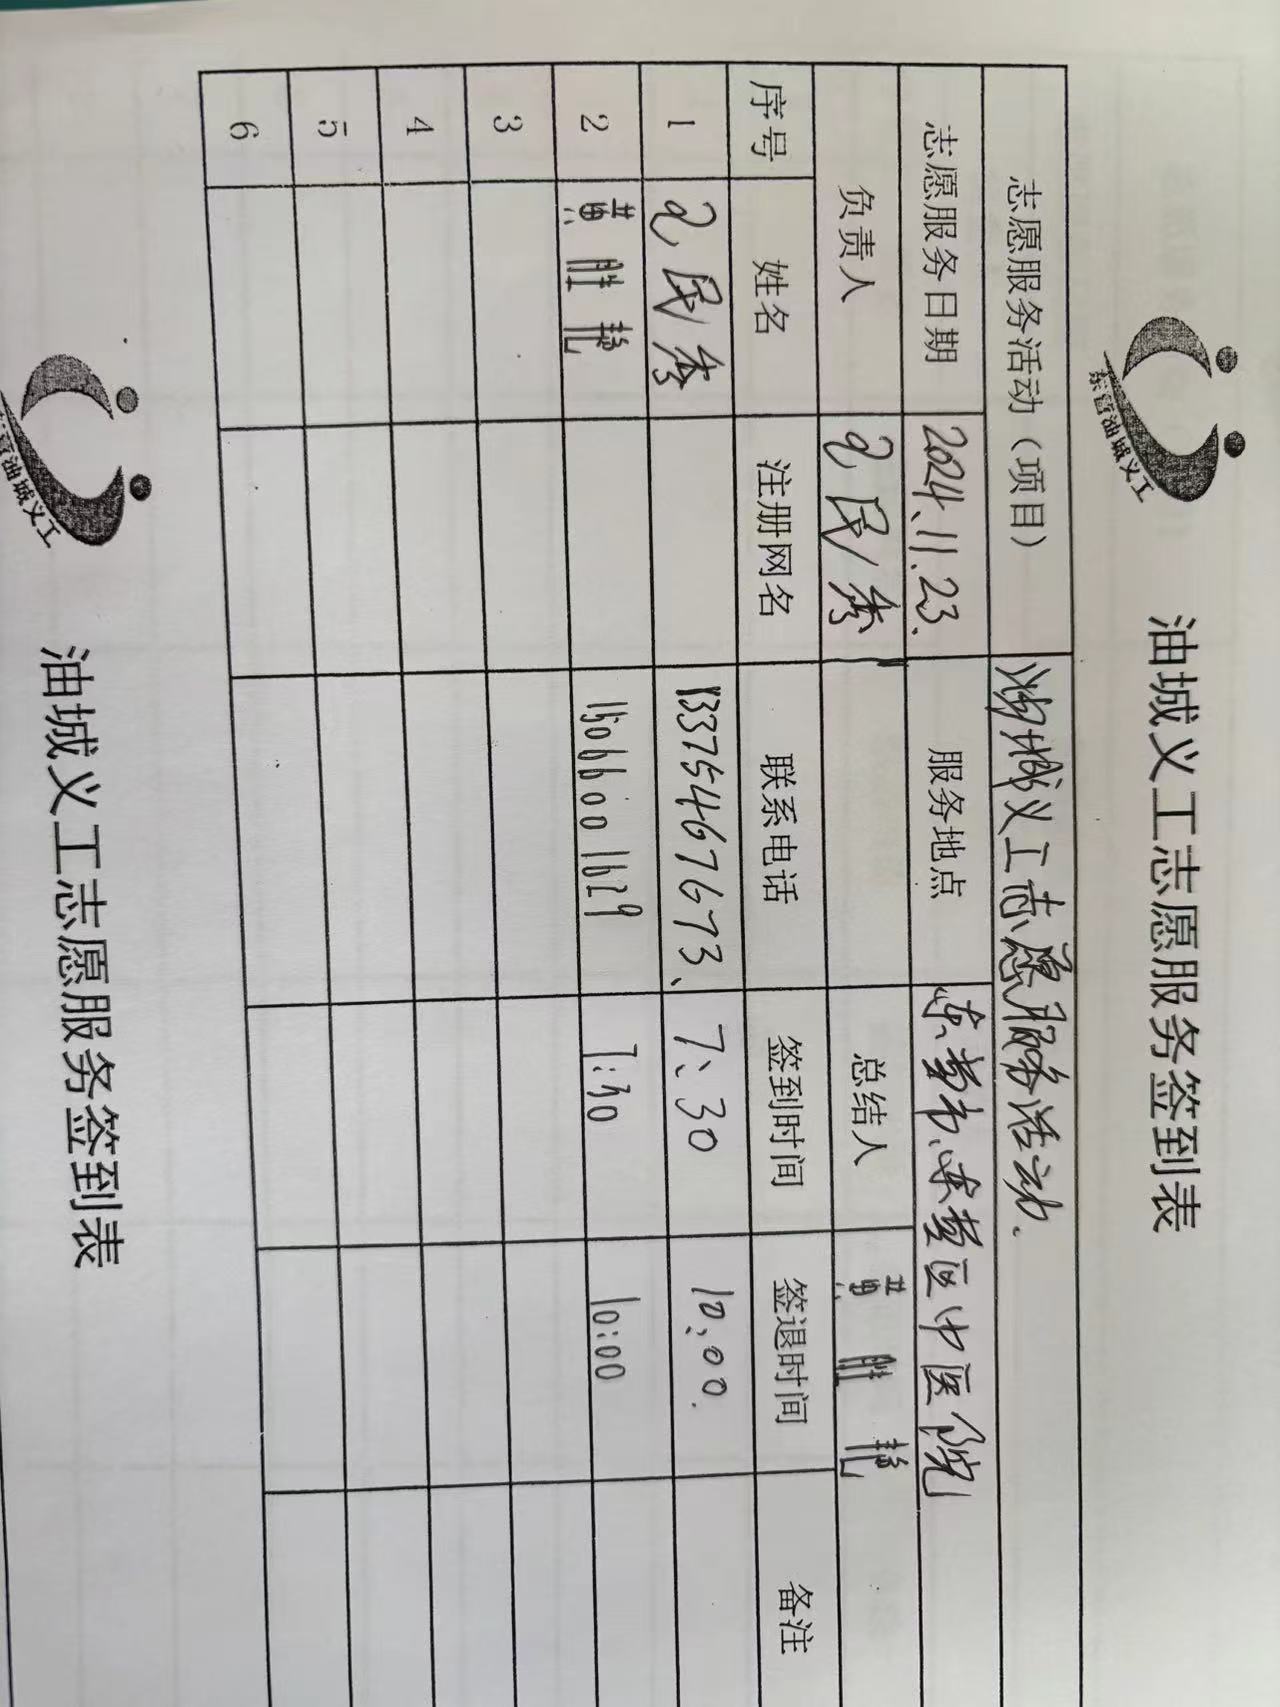 东营油城义工
油城义工志愿服务签到表
志愿服务活动（项目） 油城义工志愿服务活动.
志愿服务日期 2024.11.23. 服务地点 东营市、东营区中医院
负责人 民秀 总结人 黄胜艳
序号 姓名 注册网名 联系电话 签到时间 签退时间 备注
1 民秀 13375467673、 7、30 10、00.
2 黄胜艳 15066001629 7:30 10:00
3
4
5
6
东营油城义工
油城义工志愿服务签到表